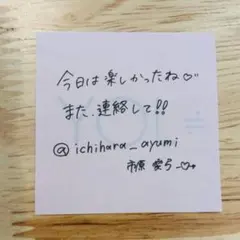 今日は楽しかったね♡
また、連絡して!!
@ichihara_ayumi
市原 愛弓